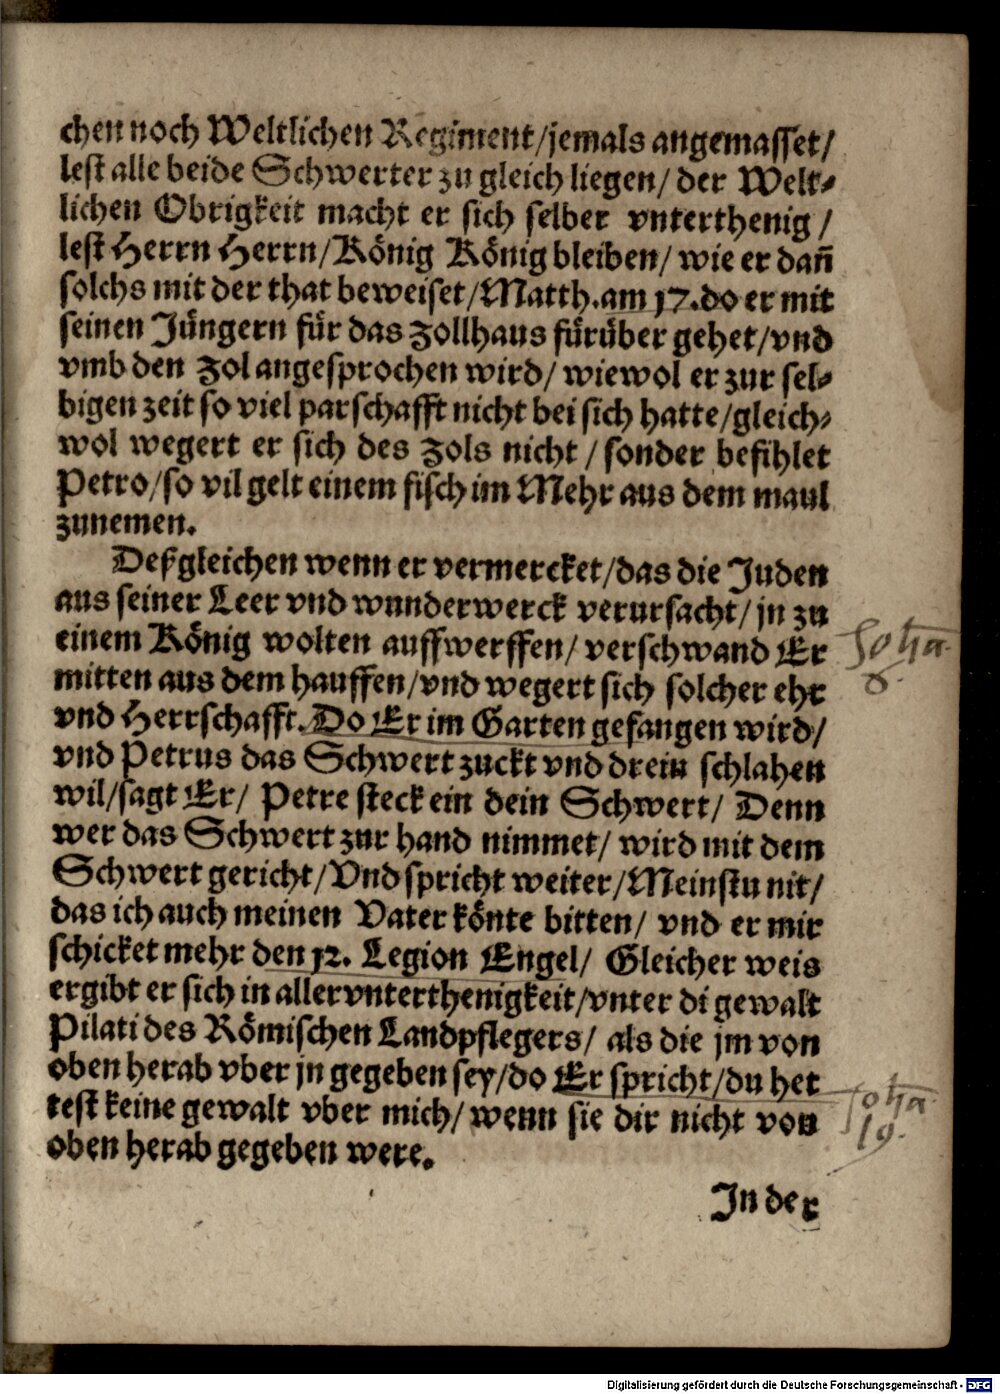 chen noch Weltlichen Regiment/jemals angemasset/
lest alle beide Schwerter zu gleich liegen/ der Welt-
lichen Obrigkeit macht er sich selber vnterthenig/
lest Herrn Herrn/König König bleiben/ wie er dañ
solchs mit der that beweiset/Matth.am 17.do er mit
seinen Jüngern für das Zollhaus fürüber gehet/vnd
vmb den Zol angesprochen wird/ wiewol er zur sel-
bigen zeit so viel parschafft nicht bei sich hatte/gleich-
wol wegert er sich des Zols nicht/ sonder befihlet
Petro/so vil gelt einem fisch im Mehr aus dem maul
zunemen.
Deßgleichen wenn er vermercket/das die Juden
aus seiner Leer vnd wunderwerck verursacht/ jn zu
einem König wolten auffwerffen/ verschwand Er
mitten aus dem hauffen/vnd wegert sich solcher ehr
vnd Herrschafft. Do Er im Garten gefangen wird/
vnd Petrus das Schwert zuckt vnd drein schlahen
wil/sagt Er/ Petre steck ein dein Schwert/ Denn
wer das Schwert zur hand nimmet/ wird mit dem
Schwert gericht/Vnd spricht weiter/Meinstu nit/
das ich auch meinen Vater könte bitten/ vnd er mir
schicket mehr den 12. Legion Engel/ Gleicher weis
ergibt er sich in aller vnterthenigkeit/vnter di gewalt
Pilati des Römischen Landpflegers/ als die jm von
oben herab vber jn gegeben sey/do Er spricht/du het
test keine gewalt vber mich/ wenn sie dir nicht von
oben herab gegeben were.
In der
Johā.
6.
Johā
19.
Digitalisierung gefördert durch die Deutsche Forschungsgemeinschaft - DFG